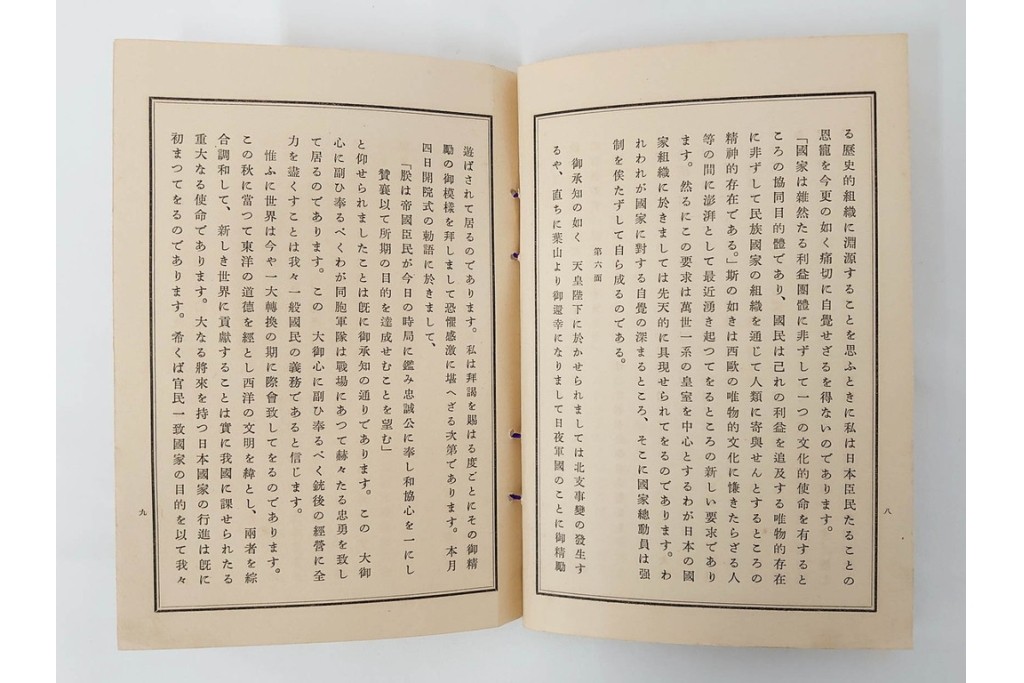 る歷史的組織に淵源することを思ふときに私は日本臣民たることの
恩寵を今更の如く痛切に自覺せざるを得ないのであります。
「國家は雜然たる利益團體に非ずして一つの文化的使命を有すると
ころの協同目的體であり、國民は己れの利益を追及する唯物的存在
に非ずして民族國家の組織を通じて人類に寄與せんとするところの
精神的存在である。」斯の如きは西歐の唯物的文化に慊きたらざる人
等の間に澎湃として最近湧き起つてをるところの新しい要求であり
ます。然るにこの要求は萬世一系の皇室を中心とするわが日本の國
家組織に於きましては先天的に具現せられてをるのであります。わ
れわれが國家に對する自覺の深まるところ、そこに國家總動員は强
制を俟たずして自ら成るのである。
第六面
御承知の如く 天皇陛下に於かせられましては北支事變の發生す
るや、直ちに葉山より御還幸になりまして日夜軍國のことに御精勵
八
遊ばされて居るのであります。私は拜謁を賜はる度ごとにその御精
勵の御模樣を拜しまして恐懼感激に堪へざる次第であります。本月
四日開院式の勅語に於きまして、
「朕は帝國臣民が今日の時局に鑑み忠誠公に奉し和協心を一にし
贊襄以て所期の目的を達成せむことを望む」
と仰せられましたことは旣に御承知の通りであります。この 大御
心に副ひ奉るべくわが同胞軍隊は戰場にあつて赫々たる忠勇を致し
て居るのであります。この 大御心に副ひ奉るべく銃後の經營に全
力を盡くすことは我々一般國民の義務であると信じます。
惟ふに世界は今や一大轉換の期に際會致してをるのであります。
この秋に當つて東洋の道德を經とし西洋の文明を緯とし、兩者を綜
合調和して、新しき世界に貢獻することは實に我國に課せられたる
重大なる使命であります。大なる將來を持つ日本國家の行進は旣に
初まつてをるのであります。希くば官民一致國家の目的を以て我々
九